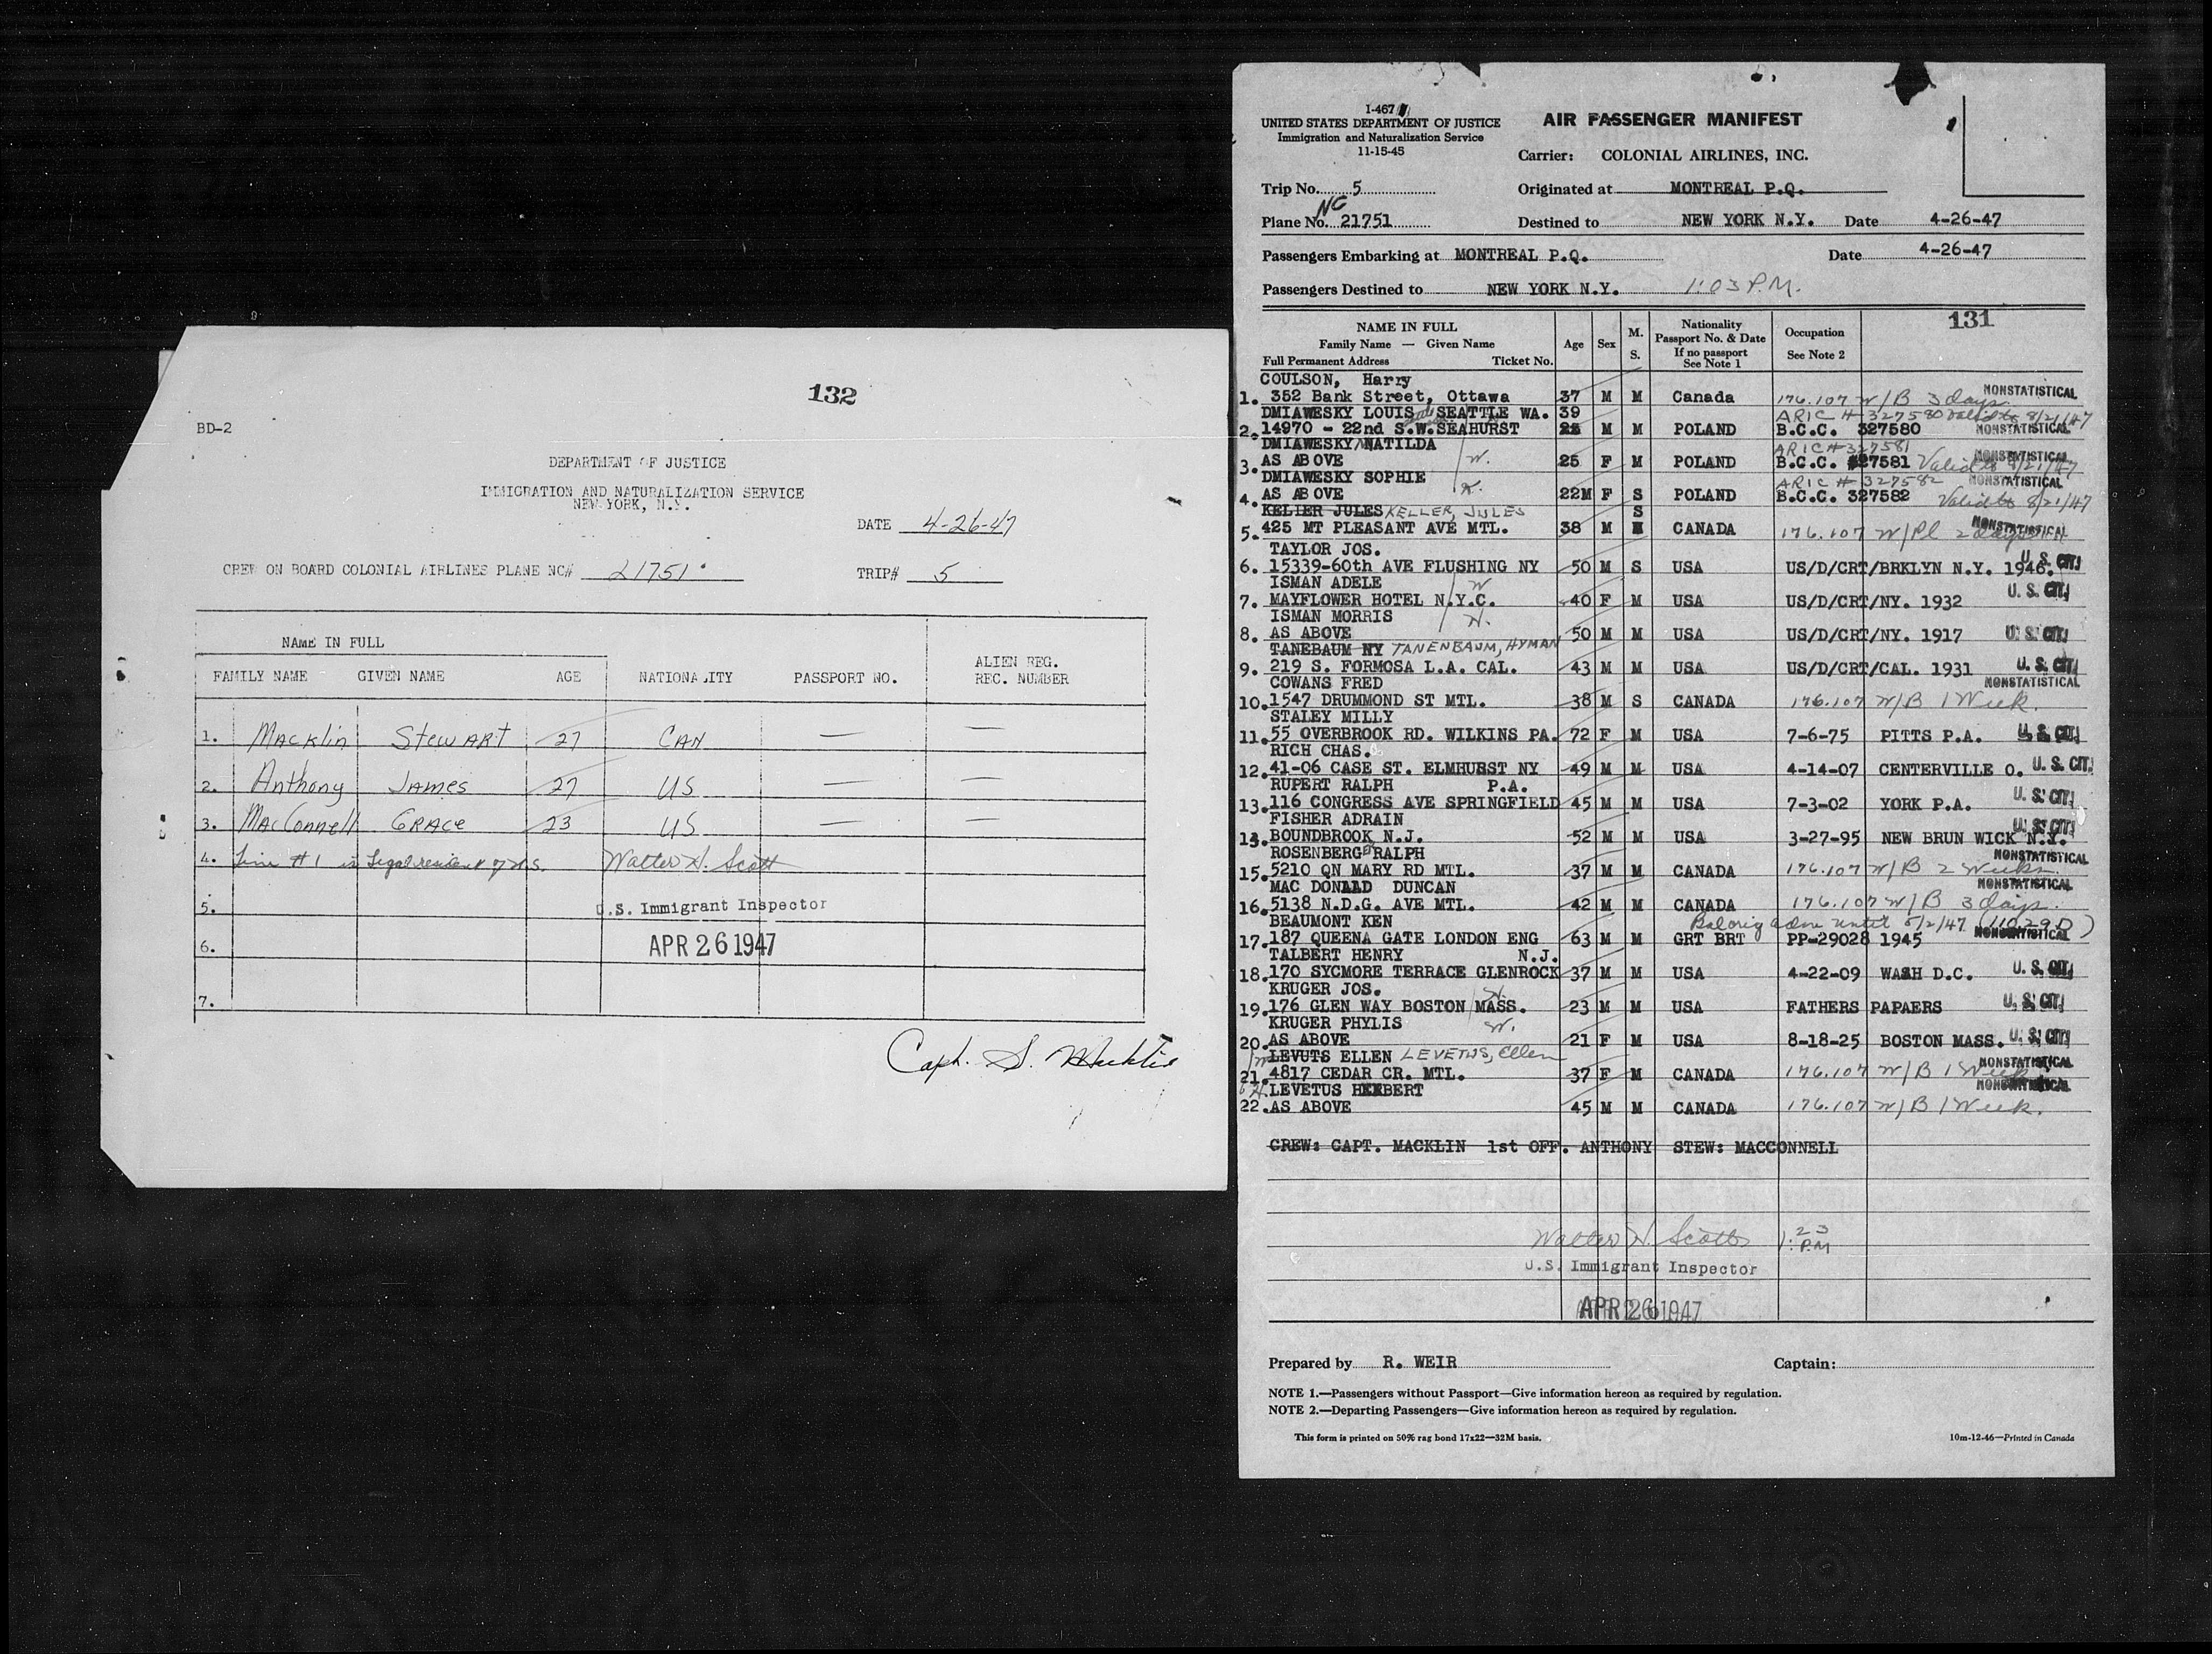 132
BD-2
DEPARTMENT OF JUSTICE
IMMIGRATION AND NATURALIZATION SERVICE
NEW YORK, N.Y.
DATE 4-26-47
CREW ON BOARD COLONIAL AIRLINES PLANE NC# 21751
TRIP# 5
NAME IN FULL
FAMILY NAME GIVEN NAME AGE NATIONALITY PASSPORT NO. ALIEN REG. REC. NUMBER
1. Macklin Stewart 27 CAN — —
2. Anthony James 27 US — —
3. MacConnell Grace 23 US — —
4. Line #1 is Legal resident of U.S. Walter H. Scott
5. U.S. Immigrant Inspector
6. APR 26 1947
7.
Capt. S. Macklin
I-467
UNITED STATES DEPARTMENT OF JUSTICE
Immigration and Naturalization Service
11-15-45
AIR PASSENGER MANIFEST
Carrier: COLONIAL AIRLINES, INC.
Trip No. 5 Originated at MONTREAL P.Q.
Plane No. NC 21751 Destined to NEW YORK N.Y. Date 4-26-47
Passengers Embarking at MONTREAL P.Q. Date 4-26-47
Passengers Destined to NEW YORK N.Y. 1:03 P.M.
131
NAME IN FULL
Family Name — Given Name
Full Permanent Address Ticket No.
Age Sex M. S.
Nationality
Passport No. & Date
If no passport
See Note 1
Occupation
See Note 2
COULSON, Harry
1. 352 Bank Street, Ottawa 37 M M Canada 176.107 W/B 3 days NONSTATISTICAL
DMIAWESKY LOUIS SEATTLE WA. 39 ARIC # 327580 Valid to 8/21/47
2. 14970 - 22nd S.W. SEAHURST M M POLAND B.C.C. 327580 NONSTATISTICAL
DMIAWESKY MATILDA W. ARIC # 327581
3. AS ABOVE 25 F M POLAND B.C.C. 327581 Valid to 8/21/47 NONSTATISTICAL
DMIAWESKY SOPHIE ARIC # 327582 NONSTATISTICAL
4. AS ABOVE 22M F S POLAND B.C.C. 327582 Valid to 8/21/47
KELIER JULES KELLER, JULES S
5. 425 MT PLEASANT AVE MTL. 38 M CANADA 176.107 W/Pl 2 days NONSTATISTICAL
TAYLOR JOS.
6. 15339-60th AVE FLUSHING NY 50 M S USA US/D/CRT/BRKLYN N.Y. 1946. U.S. CIT.
ISMAN ADELE W
7. MAYFLOWER HOTEL N.Y.C. 40 F M USA US/D/CRT/NY. 1932 U.S. CIT.
ISMAN MORRIS H.
8. AS ABOVE 50 M M USA US/D/CRT/NY. 1917 U.S. CIT.
TANEBAUM HY TANENBAUM, HYMAN
9. 219 S. FORMOSA L.A. CAL. 43 M M USA US/D/CRT/CAL. 1931 U.S. CIT.
COWANS FRED NONSTATISTICAL
10. 1547 DRUMMOND ST MTL. 38 M S CANADA 176.107 W/B 1 Week.
STALEY MILLY
11. 55 OVERBROOK RD. WILKINS PA. 72 F M USA 7-6-75 PITTS P.A. U.S. CIT.
RICH CHAS.
12. 41-06 CASE ST. ELMHURST NY 49 M M USA 4-14-07 CENTERVILLE O. U.S. CIT.
RUPERT RALPH P.A.
13. 116 CONGRESS AVE SPRINGFIELD 45 M M USA 7-3-02 YORK P.A. U.S. CIT.
FISHER ADRAIN
13. BOUNDBROOK N.J. 52 M M USA 3-27-95 NEW BRUN WICK N.J. U.S. CIT.
ROSENBERG RALPH NONSTATISTICAL
15. 5210 QN MARY RD MTL. 37 M M CANADA 176.107 W/B 2 Weeks.
MAC DONALD DUNCAN NONSTATISTICAL
16. 5138 N.D.G. AVE MTL. 42 M M CANADA 176.107 W/B 3 days.
BEAUMONT KEN Bal orig adm until 5/2/47 (110.29D)
17. 187 QUEENA GATE LONDON ENG 63 M M GRT BRT PP-29028 1945 NONSTATISTICAL
TALBERT HENRY N.J.
18. 170 SYCMORE TERRACE GLENROCK 37 M M USA 4-22-09 WASH D.C. U.S. CIT.
KRUGER JOS. H.
19. 176 GLEN WAY BOSTON MASS. 23 M M USA FATHERS PAPAERS U.S. CIT.
KRUGER PHYLIS W.
20. AS ABOVE 21 F M USA 8-18-25 BOSTON MASS. U.S. CIT.
LEVUTS ELLEN LEVETUS, Ellen
21. 4817 CEDAR CR. MTL. 37 F M CANADA 176.107 W/B 1 Week NONSTATISTICAL
LEVETUS HERBERT NONSTATISTICAL
22. AS ABOVE 45 M M CANADA 176.107 W/B 1 Week.
CREW: CAPT. MACKLIN 1st OFF. ANTHONY STEW: MACCONNELL
Walter H. Scott 1:23 P.M
U.S. Immigrant Inspector
APR 26 1947
Prepared by R. WEIR Captain:
NOTE 1.—Passengers without Passport—Give information hereon as required by regulation.
NOTE 2.—Departing Passengers—Give information hereon as required by regulation.
This form is printed on 50% rag bond 17x22—32M basis. 10m-12-46—Printed in Canada